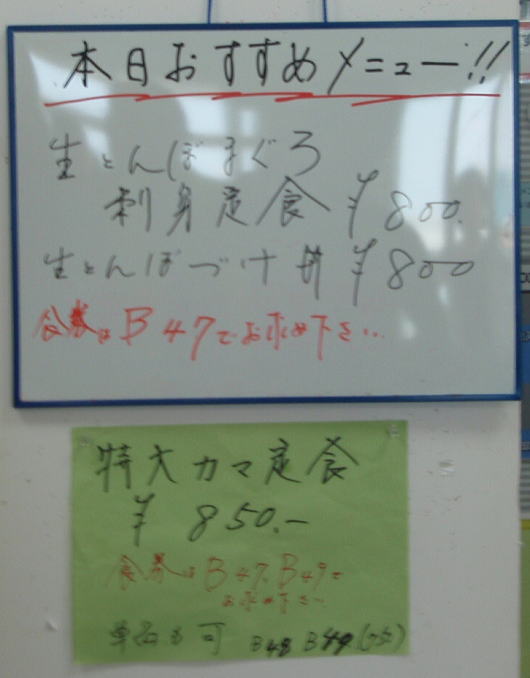 本日おすすめメニュー!!
生とんぼまぐろ
刺身定食 ¥800.
生とんぼづけ丼 ¥800
食券はB47でお求め下さい..
特大カマ定食
¥850.-
食券はB47、B49で
お求め下さい
単品も可 B48 B49